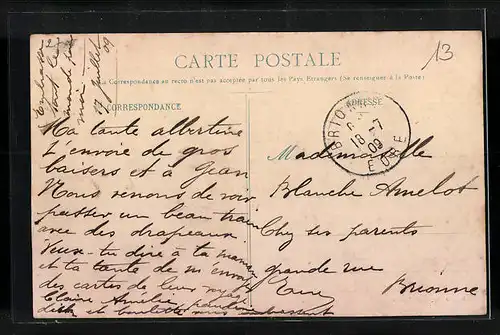 CARTE POSTALE
13
La Correspondance au recto n'est pas acceptée par tous les Pays Etrangers (Se renseigner à la Poste)
CORRESPONDANCE
ADRESSE
17 Juillet 09
Ma tante albertine
t'envoie de gros
baisers et a Jean
Nous venons de voir
passer un beau train
avec des drapeaux
Veux-tu dire à ta maman
et ta tante de m'envoyer
des cartes de leur
Claire Amélie
et
18 -7
09
EURE
Mademoiselle
Blanche Amelot
Chez ses parents
grande rue
Eure Brionne